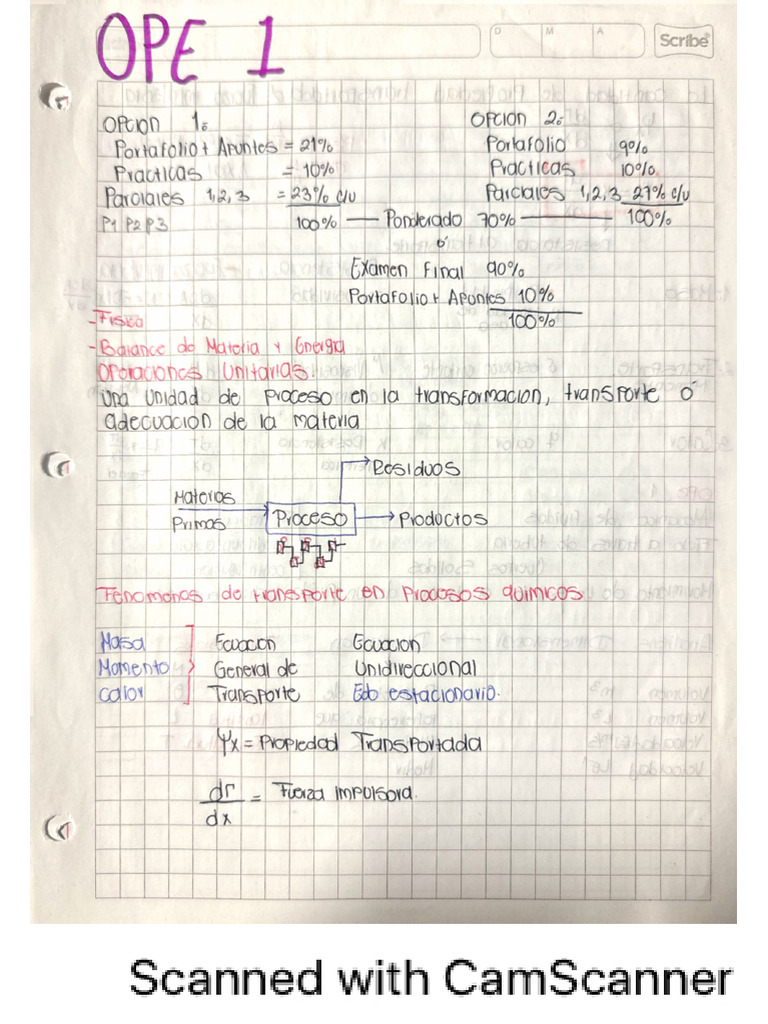 OPE 1
D M A
Scribe
OPCION 1.
Portafolio + Apuntes = 21%
Practicas = 10%
Parciales 1,2,3 = 23% c/u
P1 P2 P3 100% — Ponderado 70% — 100%
OPCION 2.
Portafolio 9%
Practicas 10%
Parciales 1,2,3 27% c/u
ó
Examen Final 90%
Portafolio + Apuntes 10%
100%
- Fisica
- Balance de Materia y Energia
Operaciones Unitarias.
Una Unidad de Proceso en la transformacion, transporte ó
adecuacion de la materia
Residuos
Materias
Primas
Proceso
Productos
Fenomenos de transporte en Procesos quimicos
Masa Ecuacion Ecuacion
Momento General de Unidireccional
Calor Transporte Edo estacionario.
Ψx = Propiedad Transportada
dΓ
dx
= Fuerza impulsora.
Scanned with CamScanner